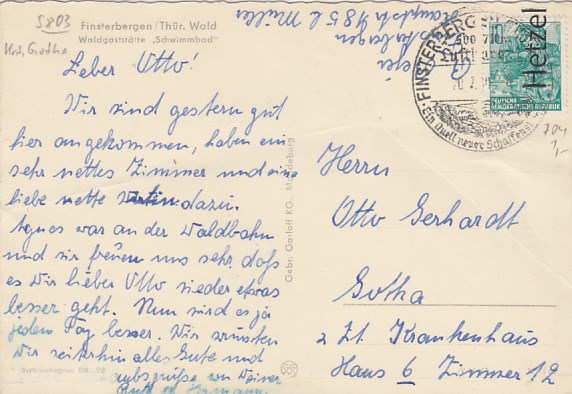 5803
Krs. Gotha
Finsterbergen/Thür. Wald
Waldgaststätte „Schwimmbad"
bei L. Müller
Lieber Otto!
Wir sind gestern gut
hier angekommen, haben ein
sehr nettes Zimmer und eine
liebe nette Wirtin dazu.
Agnes war an der Waldbahn
und wir freuen uns sehr, daß
es Dir lieber Otto wieder etwas
besser geht. Nun wird es ja
jeden Tag besser. Wir wünschen
Dir weiterhin alles Gute und
Urlaubsgrüße von Deiner
Ruth u. Hermann.
Gebr. Garloff KG., Magdeburg
FINSTERBERGEN
Ein Quell neuer Schaffens
10
DEUTSCHE
DEMOKRATISCHE REPUBLIK
Hetzel
704
1,-
Herrn
Otto Gerhardt
Gotha
z Zt. Krankenhaus
Haus 6 Zimmer 12